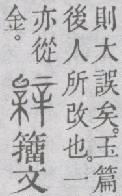 則大誤矣。玉篇
後人所改也。一
亦從
金。
籒文